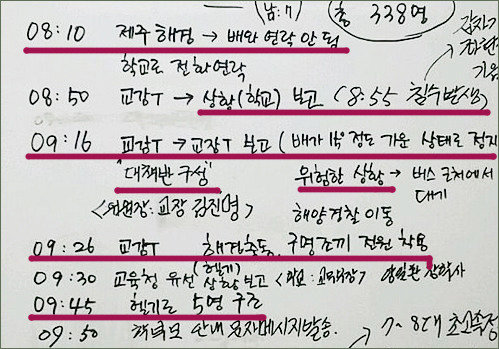 (남:7
총 338명
08:10 제주 해경 → 배와 연락 안 됨
갑자기
학교로 전화연락
기울
08:50 교감T → 상황(학교) 보고 (8:55 침수발생)
09:16 교감T → 교장T 보고 (배가 15° 정도 기운 상태로 정지
"대책반 구성" 위험한 상황 → 버스 근처에서
<위원장: 교장 김진명> 대기
해양경찰 이동
09:26 교감T 해경출동, 구명조끼 전원 착용
09:30 교육청 유선 (헬기) 상황보고
09:45 헬기로 5명 구조
09:50 학부모 안내 문자메시지발송. 7-8대